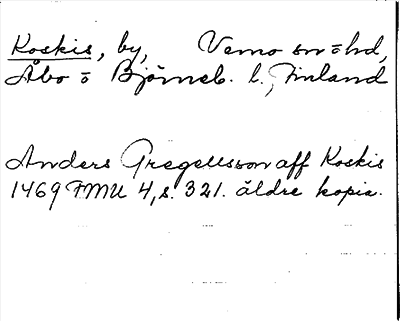 Koskis, by, Vemo sn o hd,
Åbo o Björneb. l., Finland
Anders Gregelsson aff Koskis
1469 FMU 4, s. 321. äldre kopia.